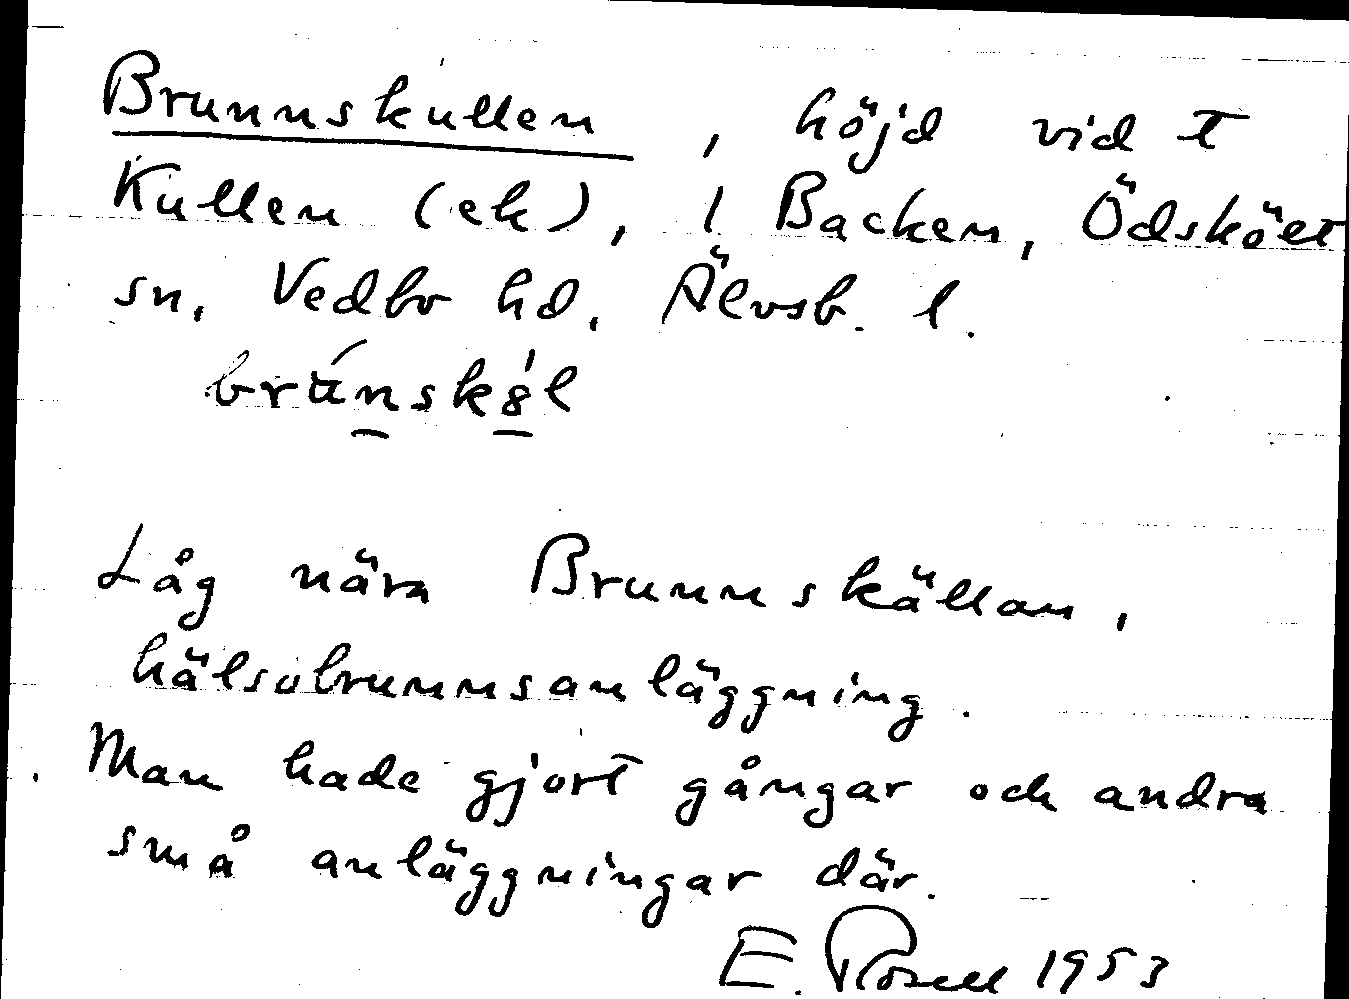 Brunnskullen, höjd vid t
Kullen (ek), 1 Backen, Ödskölt
sn, Vedbo hd. Älvsb. l.
Låg nära Brunnskällan,
hälsobrunnsanläggning.
Man hade gjort gångar och andra
små anläggningar där.
E. Rosell 1953